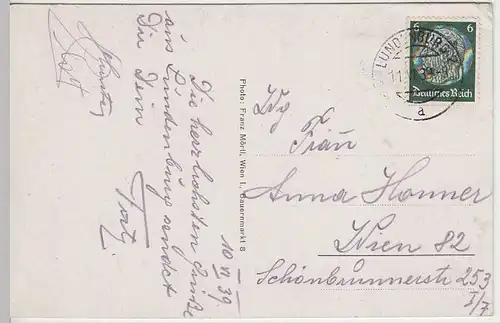 Die herzlichsten Grüße
aus Lundenburg sendet
Dir Dein
10 VI 39.
Photo: Franz Mörtl, Wien I., Bauernmarkt 8
LUNDENBURG
11.
a
6 6
Deutsches Reich
Frau
Anna Honner
Wien 82
Schönbrunnerstr 253
I/7